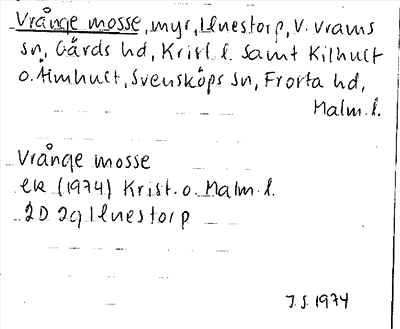 Vrånge mosse, myr, Ilnestorp, V. Vrams
sn, Gärds hd, Krist l. samt Kilhult
o. Älmhult, Svensköps sn, Frosta hd,
Malm. l.
Vrånge mosse
ek (1974) Krist. o. Malm. l.
2D 2g Ilnestorp
J.S. 1974